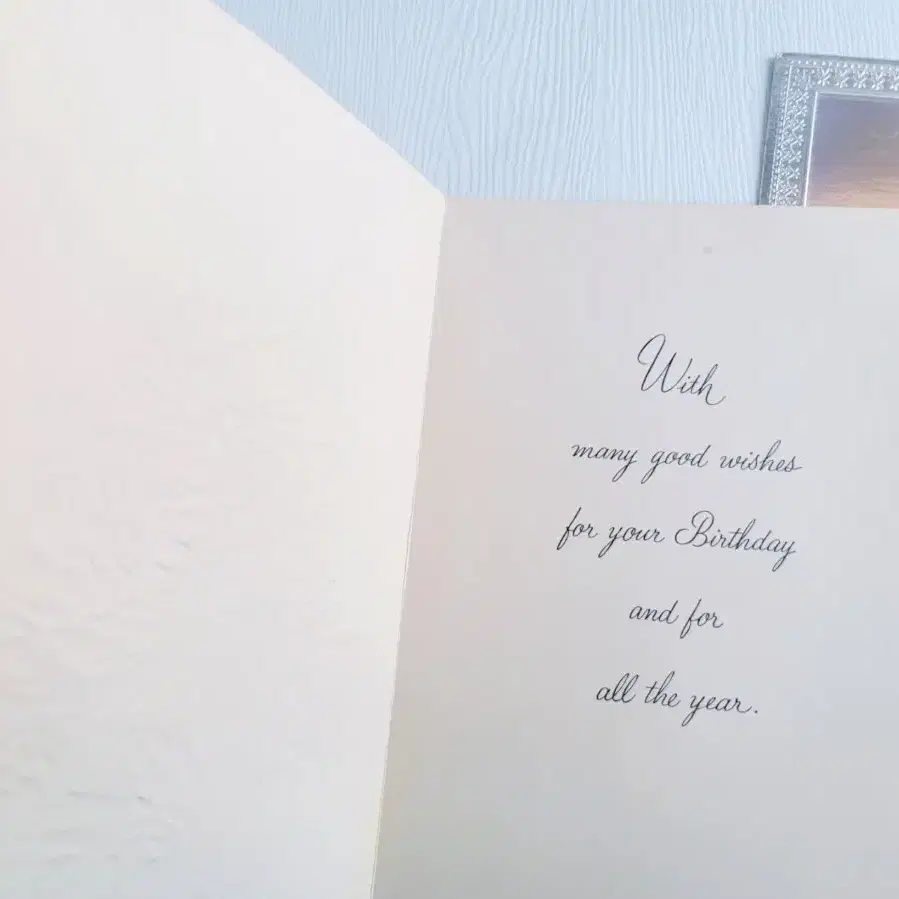 With
many good wishes
for your Birthday
and for
all the year.